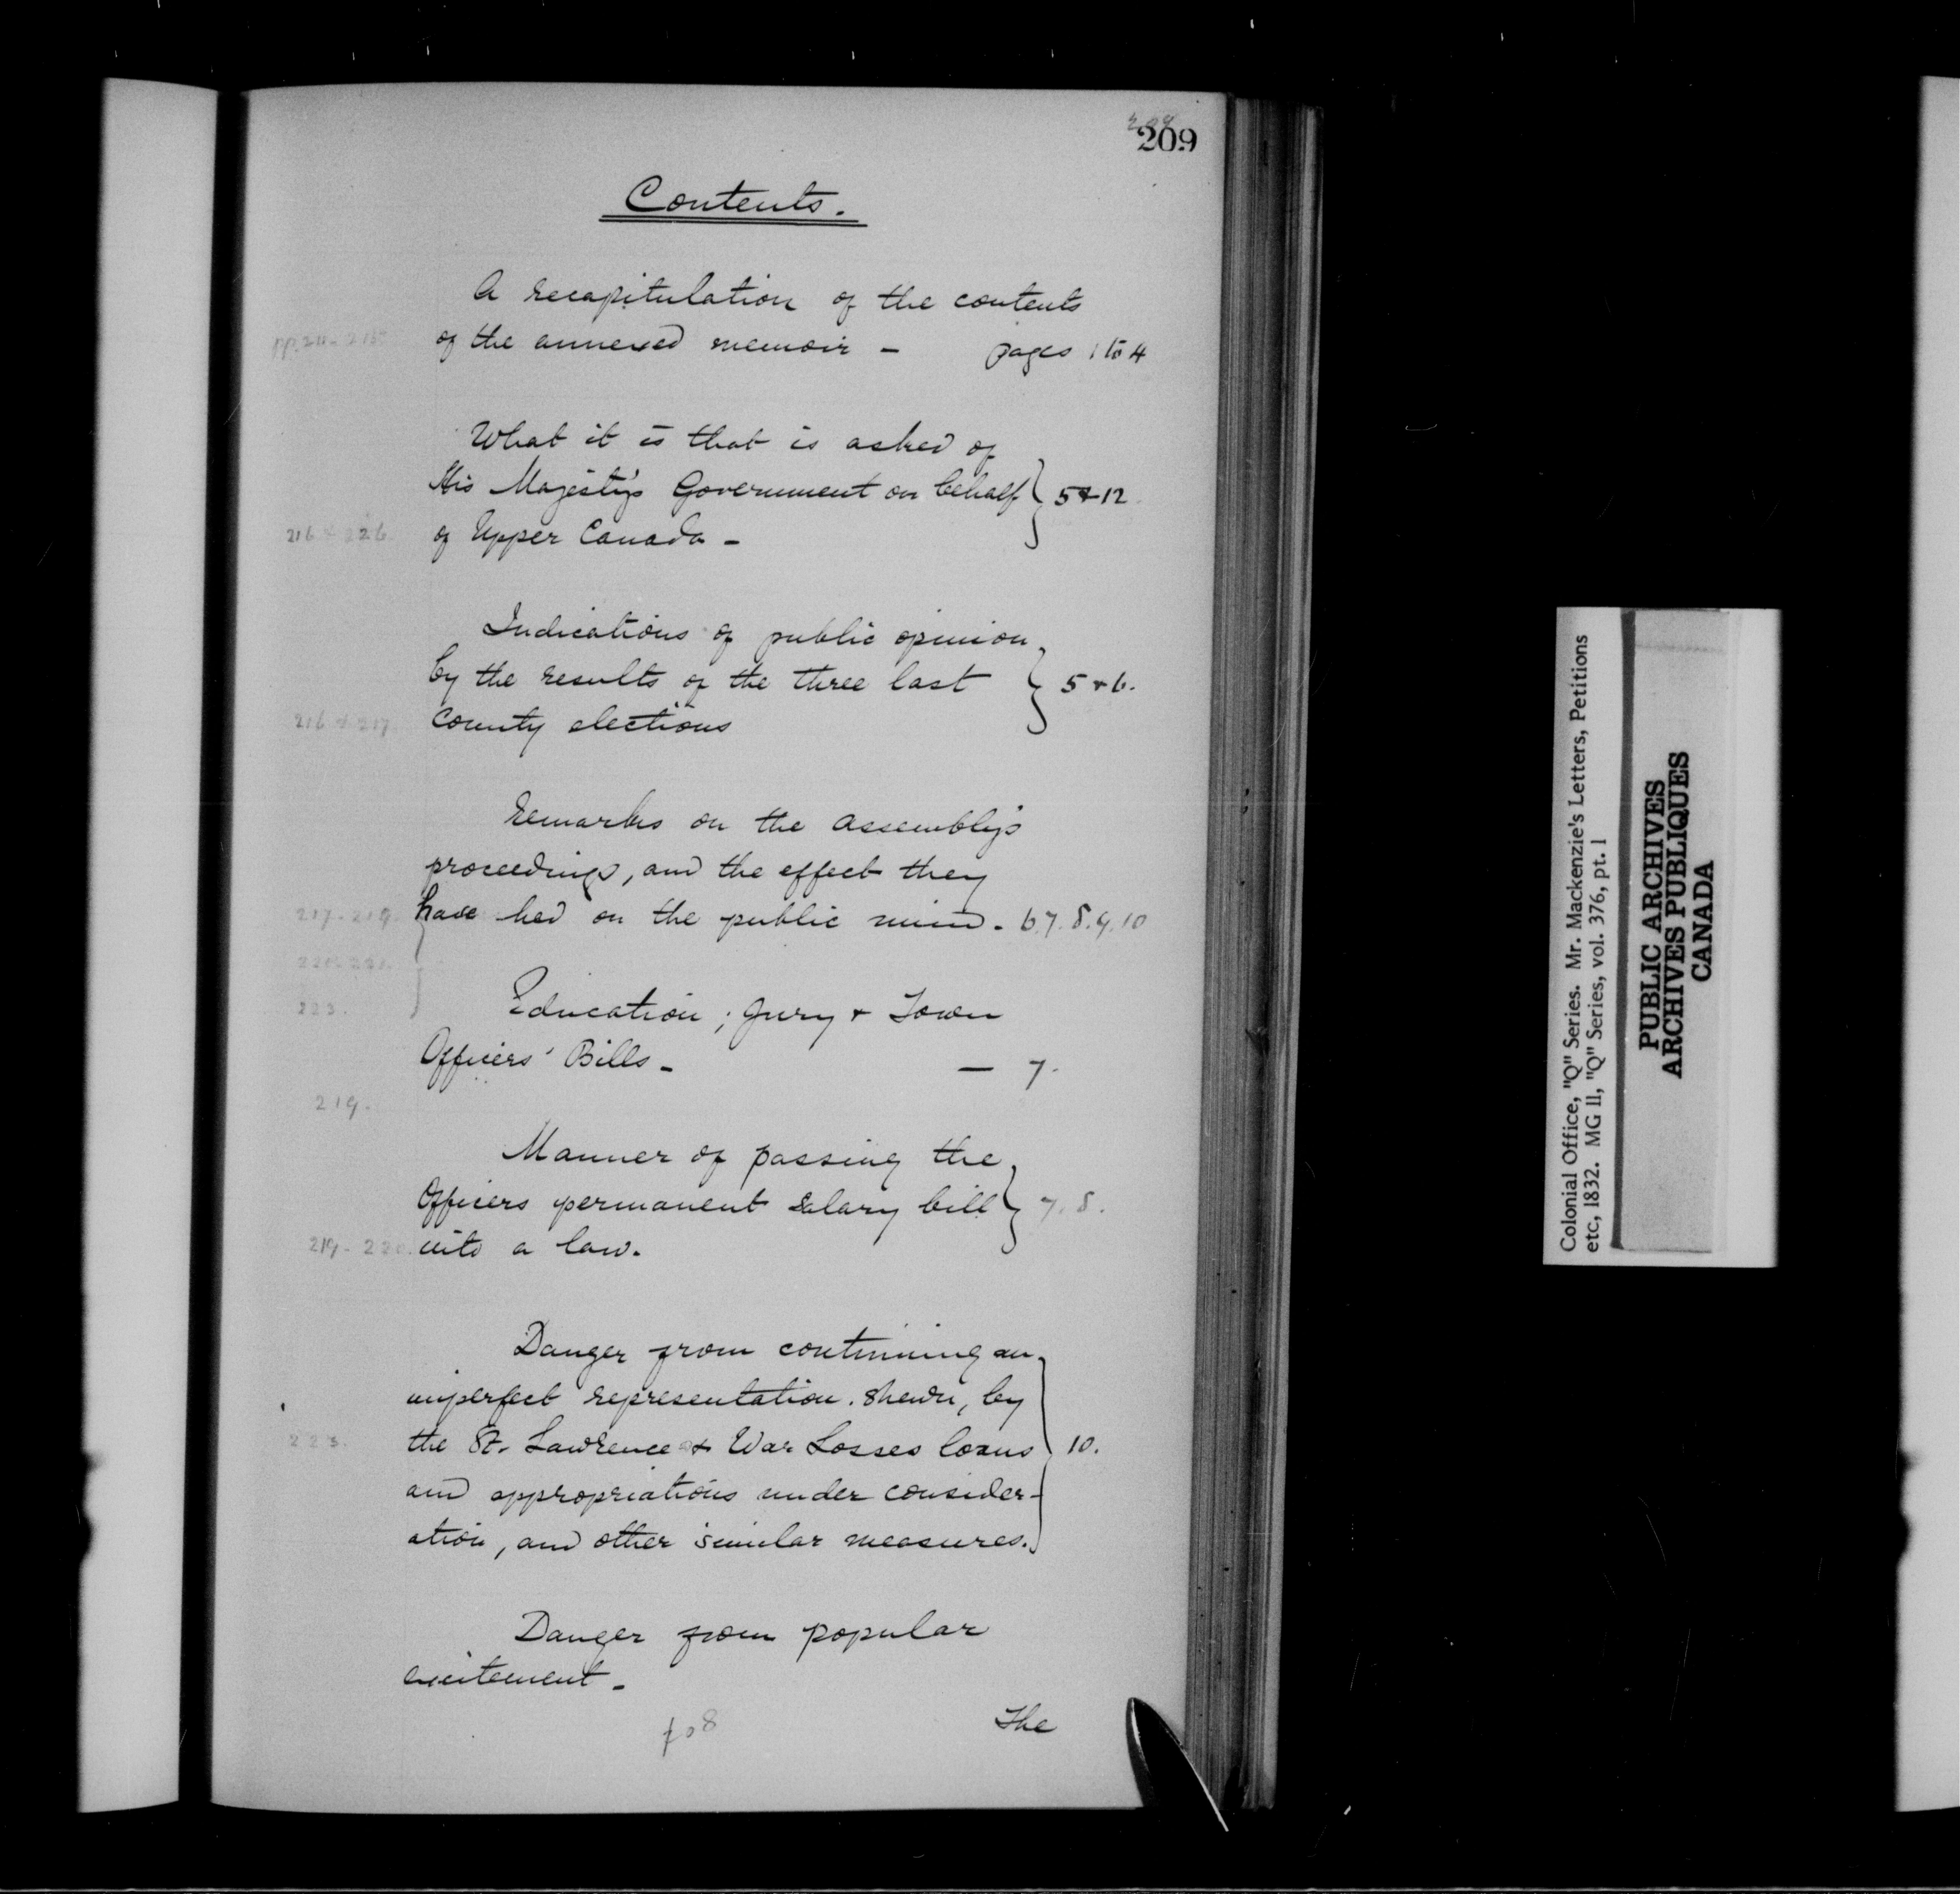 209
Contents.
A recapitulation of the contents
pp. 211-215 of the annexed memoir - pages 1 to 4
What it is that is asked of
His Majesty's Government on behalf } 5 & 12
216 & 226. of Upper Canada -
Indications of public opinion
by the results of the three last } 5 & 6.
216 & 217. County elections
Remarks on the Assembly's
proceedings, and the effect they
217-219. have had on the public mind. 6.7.8.9.10
223.
Education; Jury & Town
Officers' Bills - — 7.
219.
Manner of passing the
Officers permanent Salary bill } 7.8.
219-220. into a law.
Danger from continuing an
imperfect representation. shewn, by
223. the St. Lawrence & War Losses loans } 10.
and appropriations under consider-
ation, and other similar measures.
Danger from popular
excitement -
fo 8
The
Colonial Office, "Q" Series. Mr. Mackenzie's Letters, Petitions
etc, 1832. MG 11, "Q" Series, vol. 376, pt. 1
PUBLIC ARCHIVES
ARCHIVES PUBLIQUES
CANADA